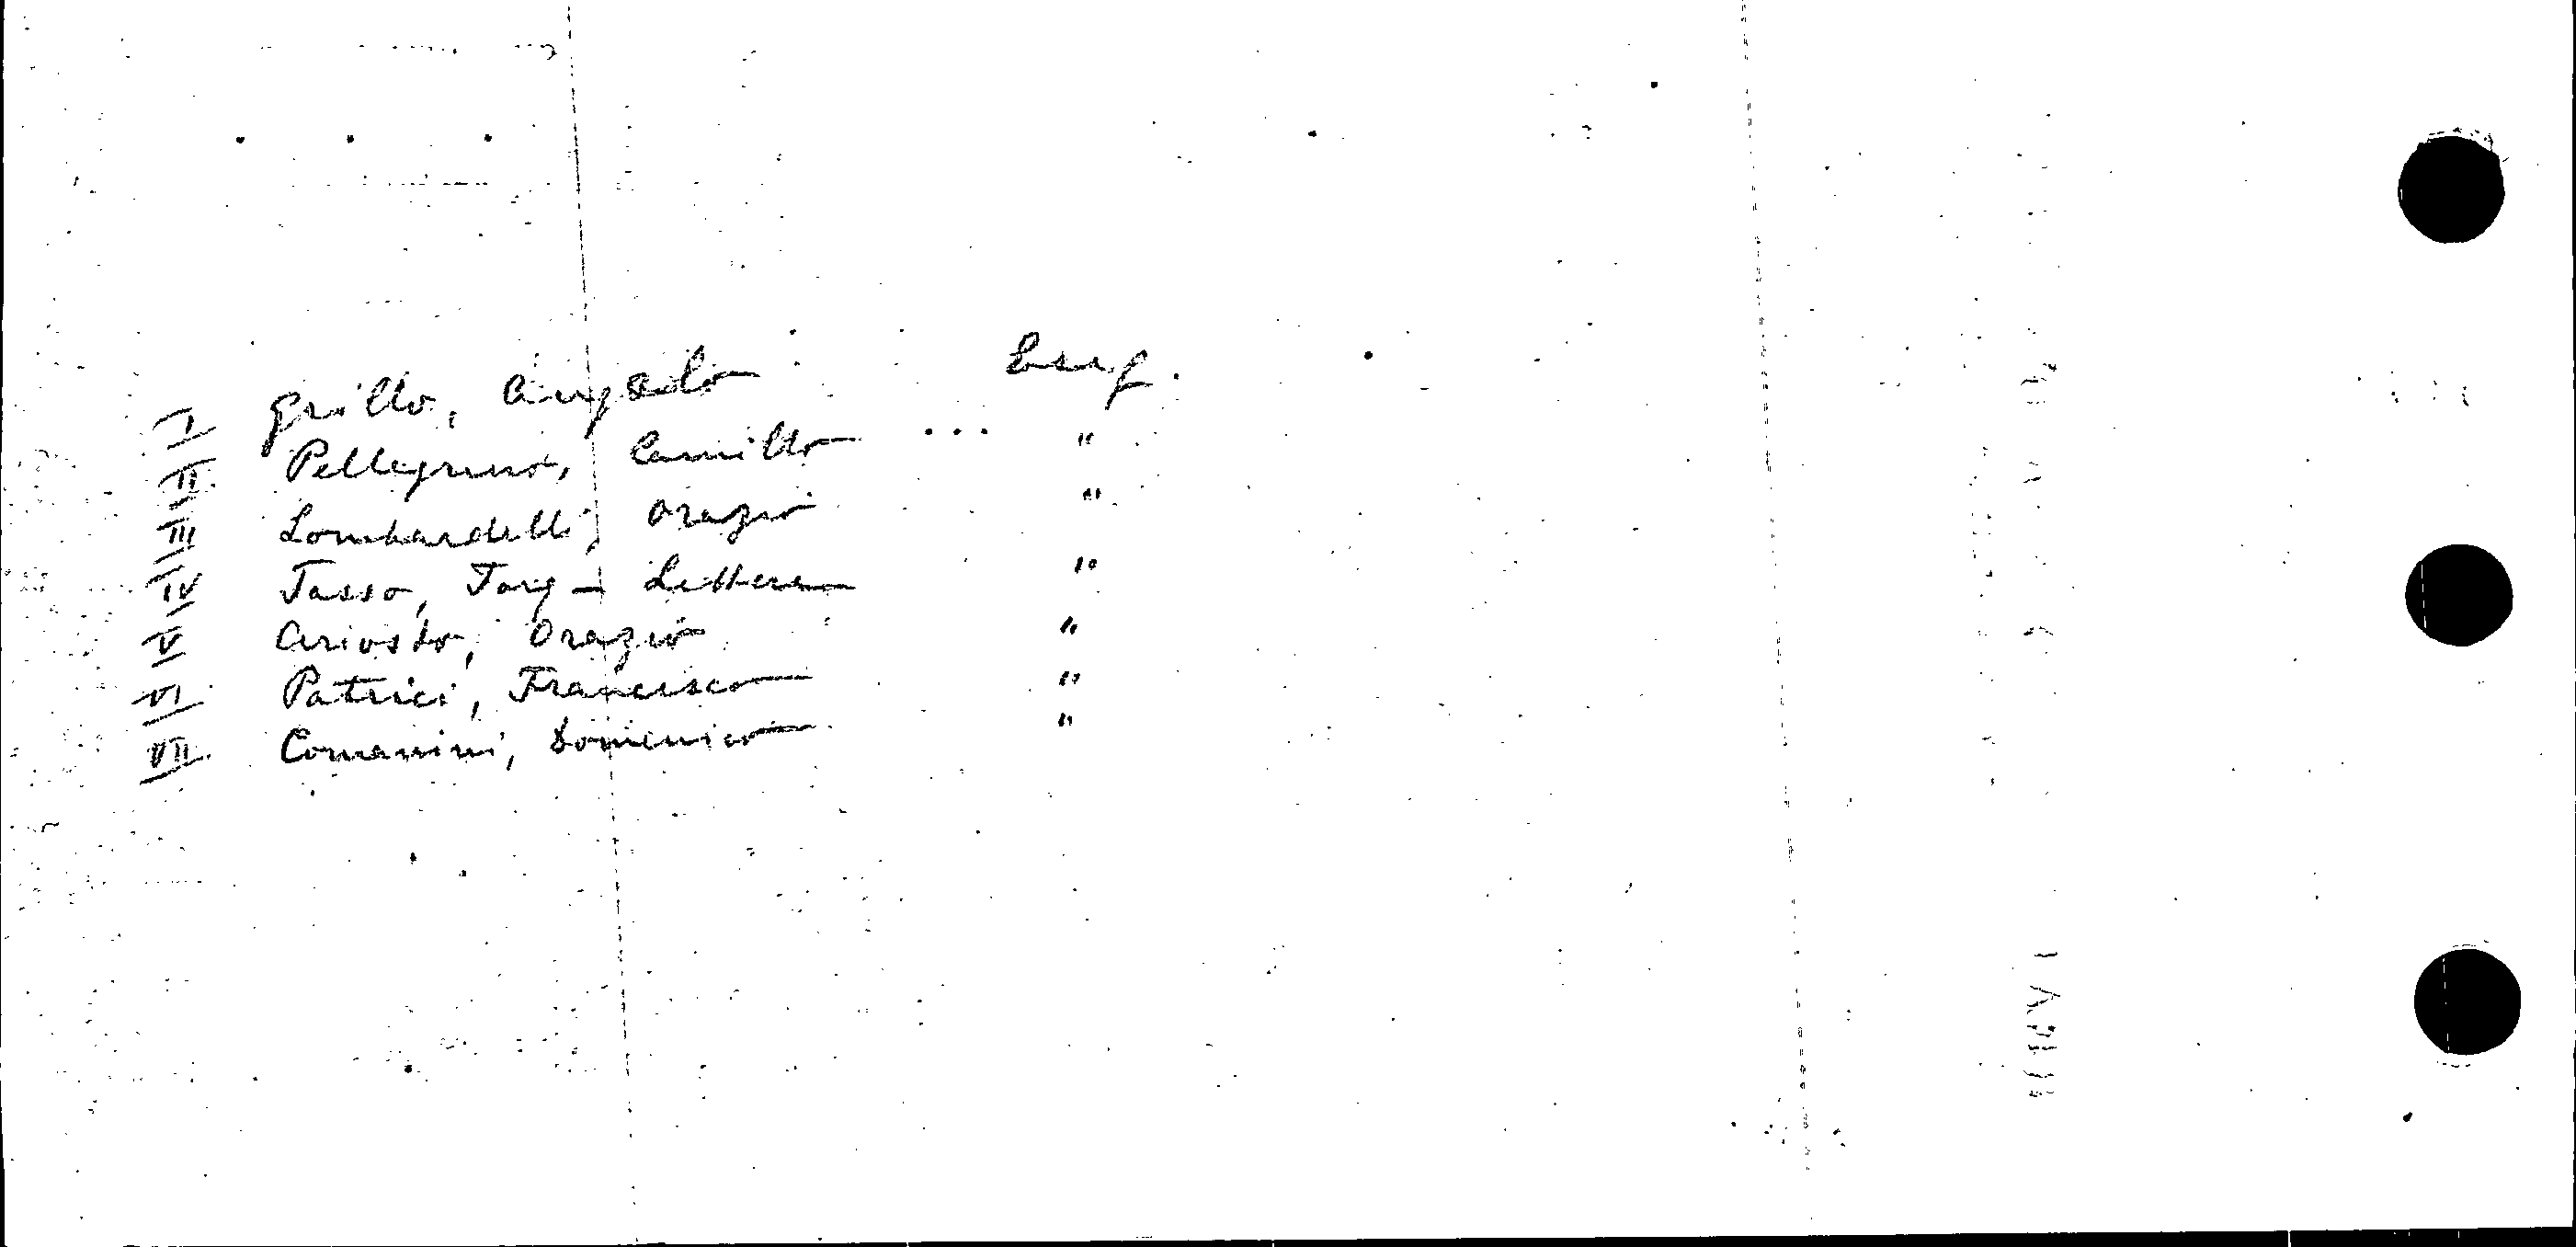 I Grillo, Angelo Berg.
II Pellegrino, Camillo ... "
III Lombardelli, Orazio "
IV Tasso, Torq - Lettere "
V Ariosto, Orazio "
VI Patrici, Francesco "
VII Comanini, Domenico "